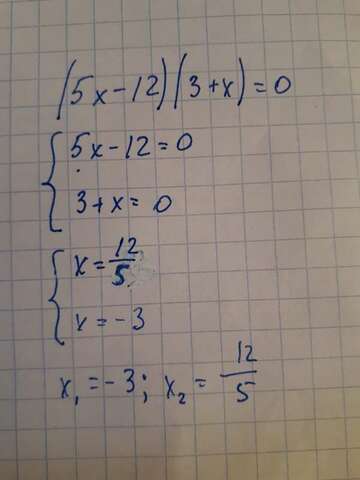 (5x-12)(3+x)=0
5x-12=0
3+x=0
x=12/5
x=-3
x₁=-3; x₂=12/5